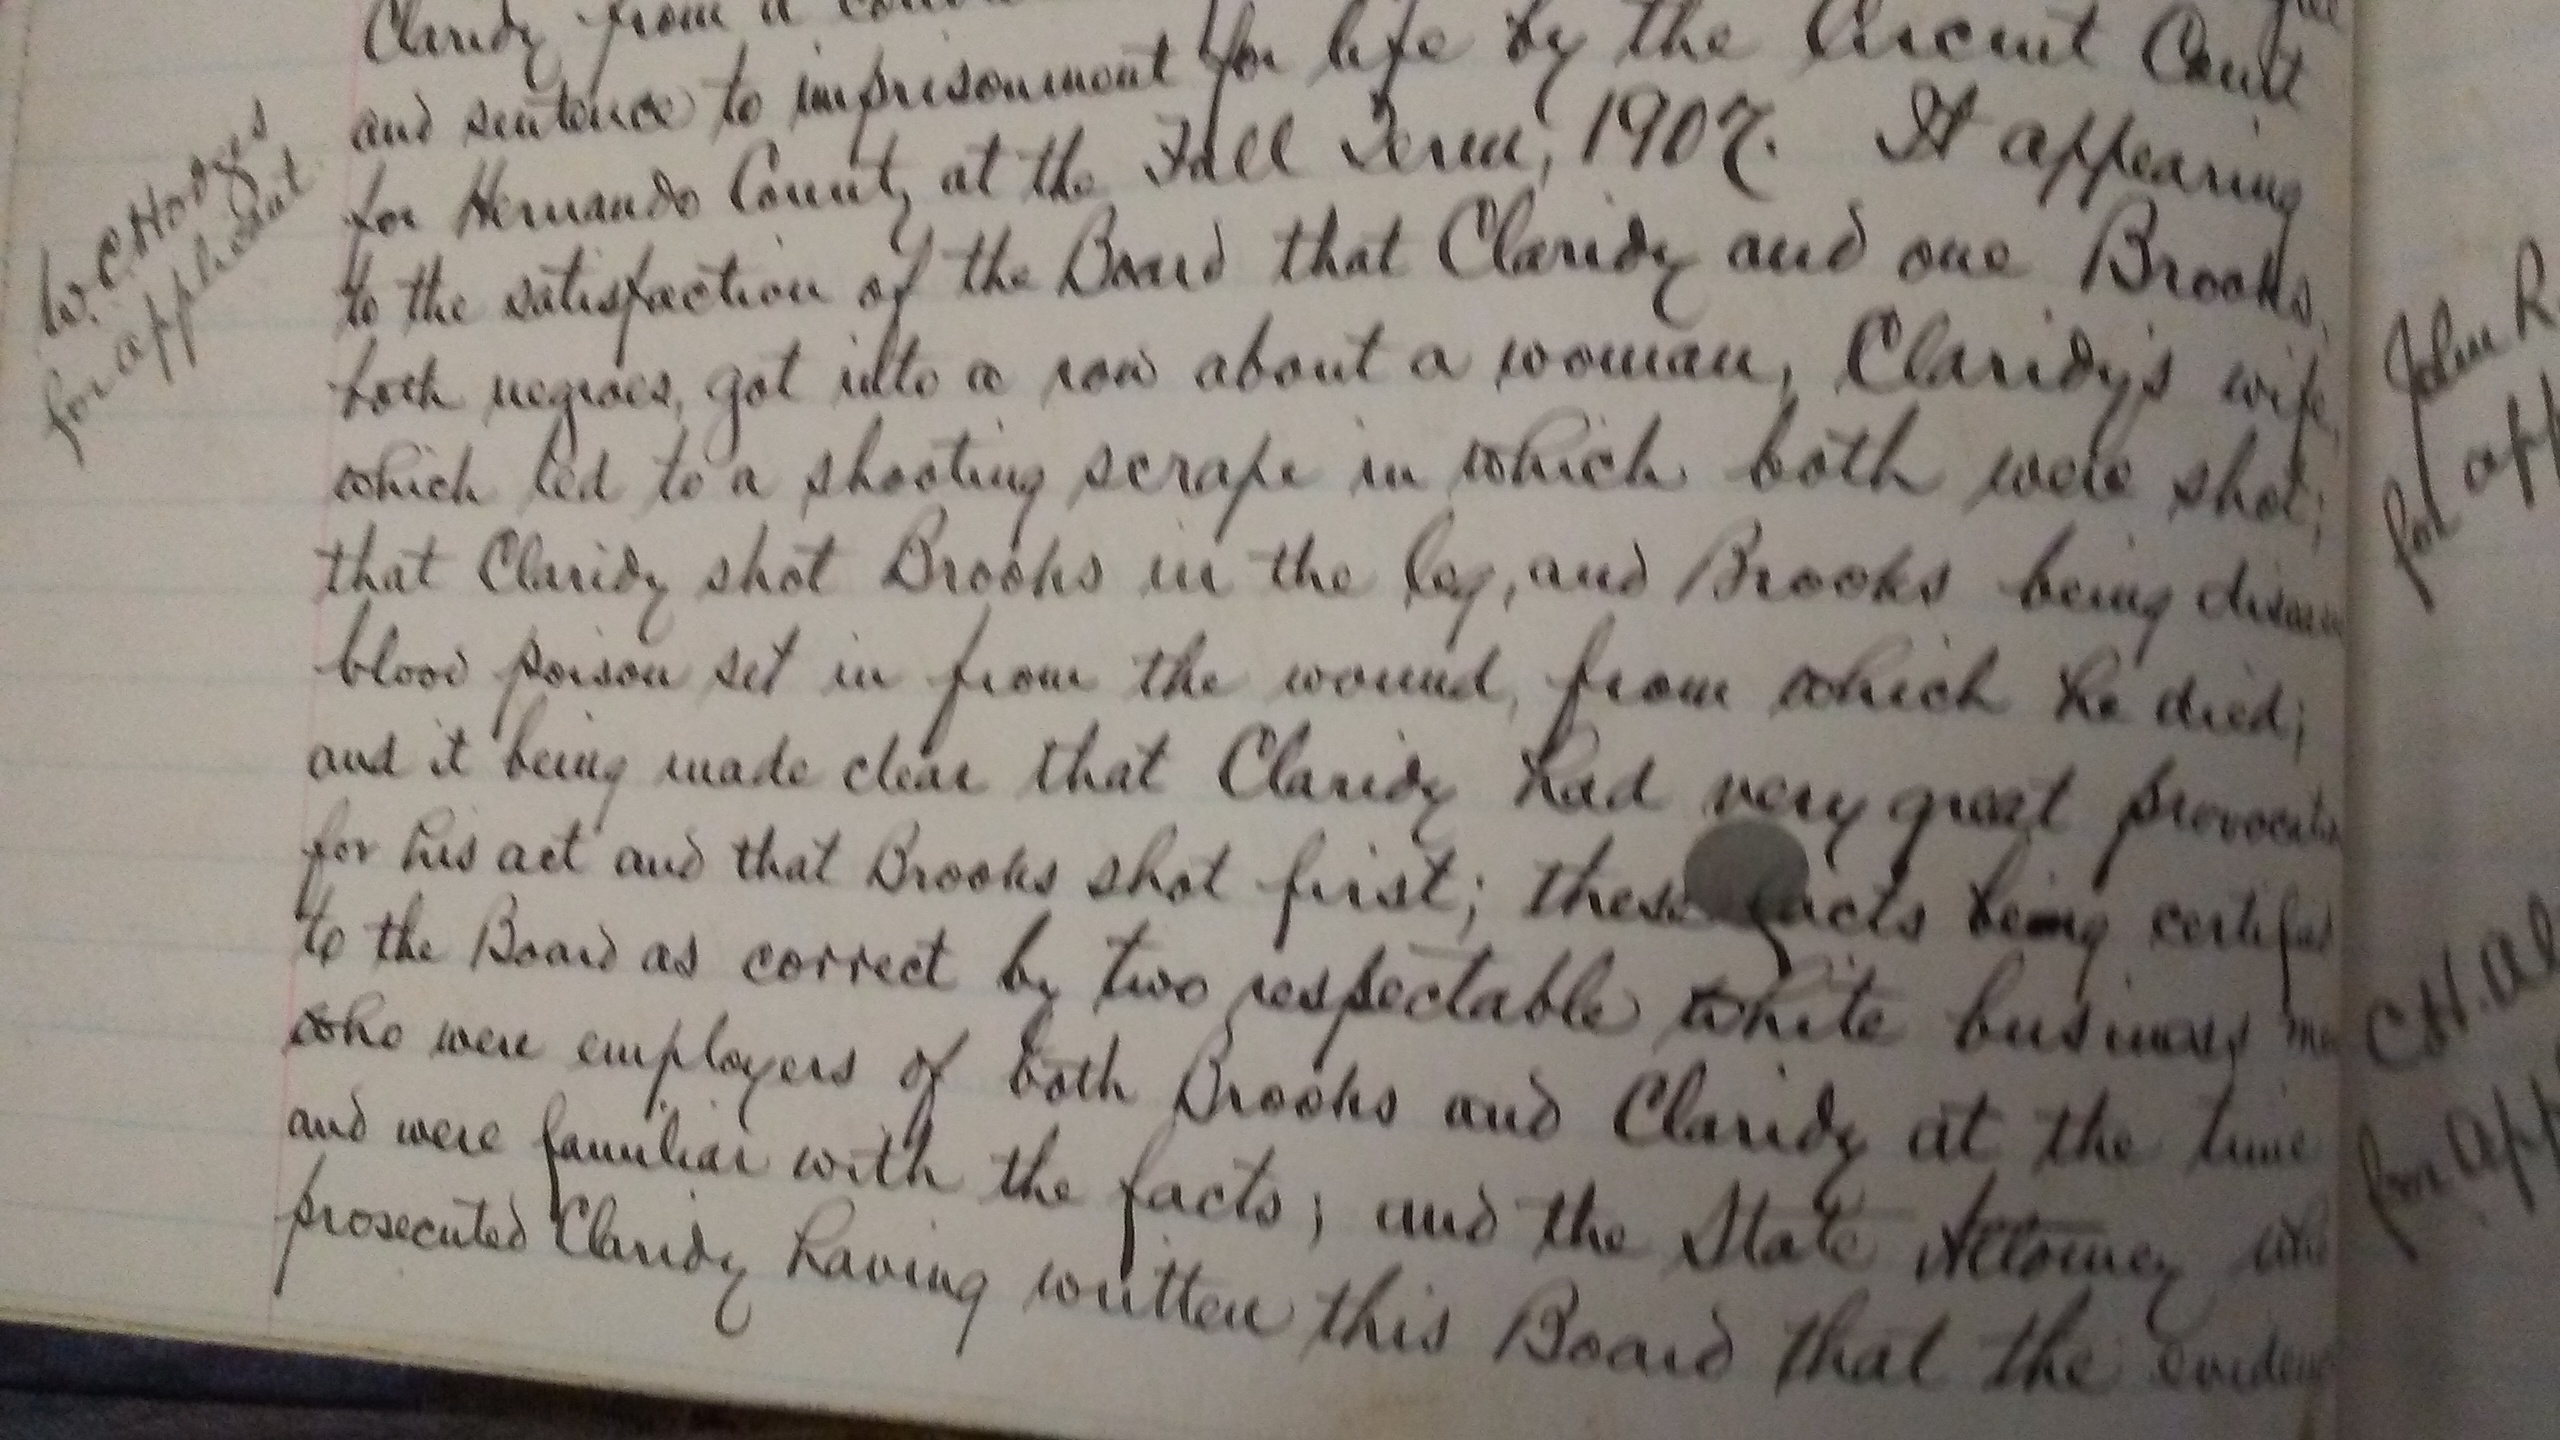 Claridy from a
and sentence to imprisonment for life by the Circuit Court
for Hernando County, at the Fall Term, 1907. It appearing
to the satisfaction of the Board that Claridy and one Brooks,
both negroes, got into a row about a woman, Claridy's wife,
which led to a shooting scrape in which both were shot;
that Claridy shot Brooks in the leg, and Brooks being
blood poison set in from the wound, from which he died;
and it being made clear that Claridy had very great
for his act and that Brooks shot first; these facts being
to the Board as correct by two respectable white business
who were employers of both Brooks and Claridy at the time
and were familiar with the facts; and the State Attorney who
prosecuted Claridy having written this Board that the
John
for
for